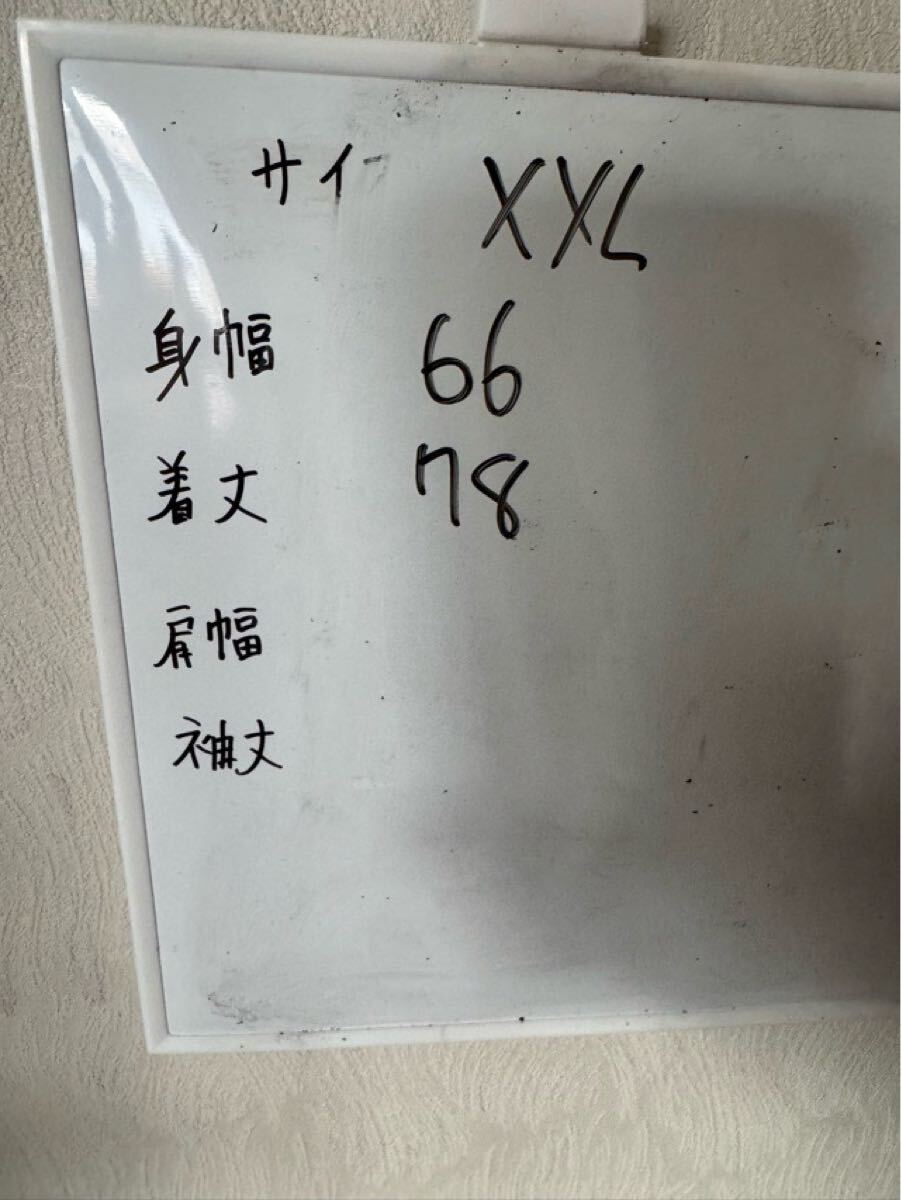 サイ XXL
身幅 66
着丈 78
肩幅
袖丈